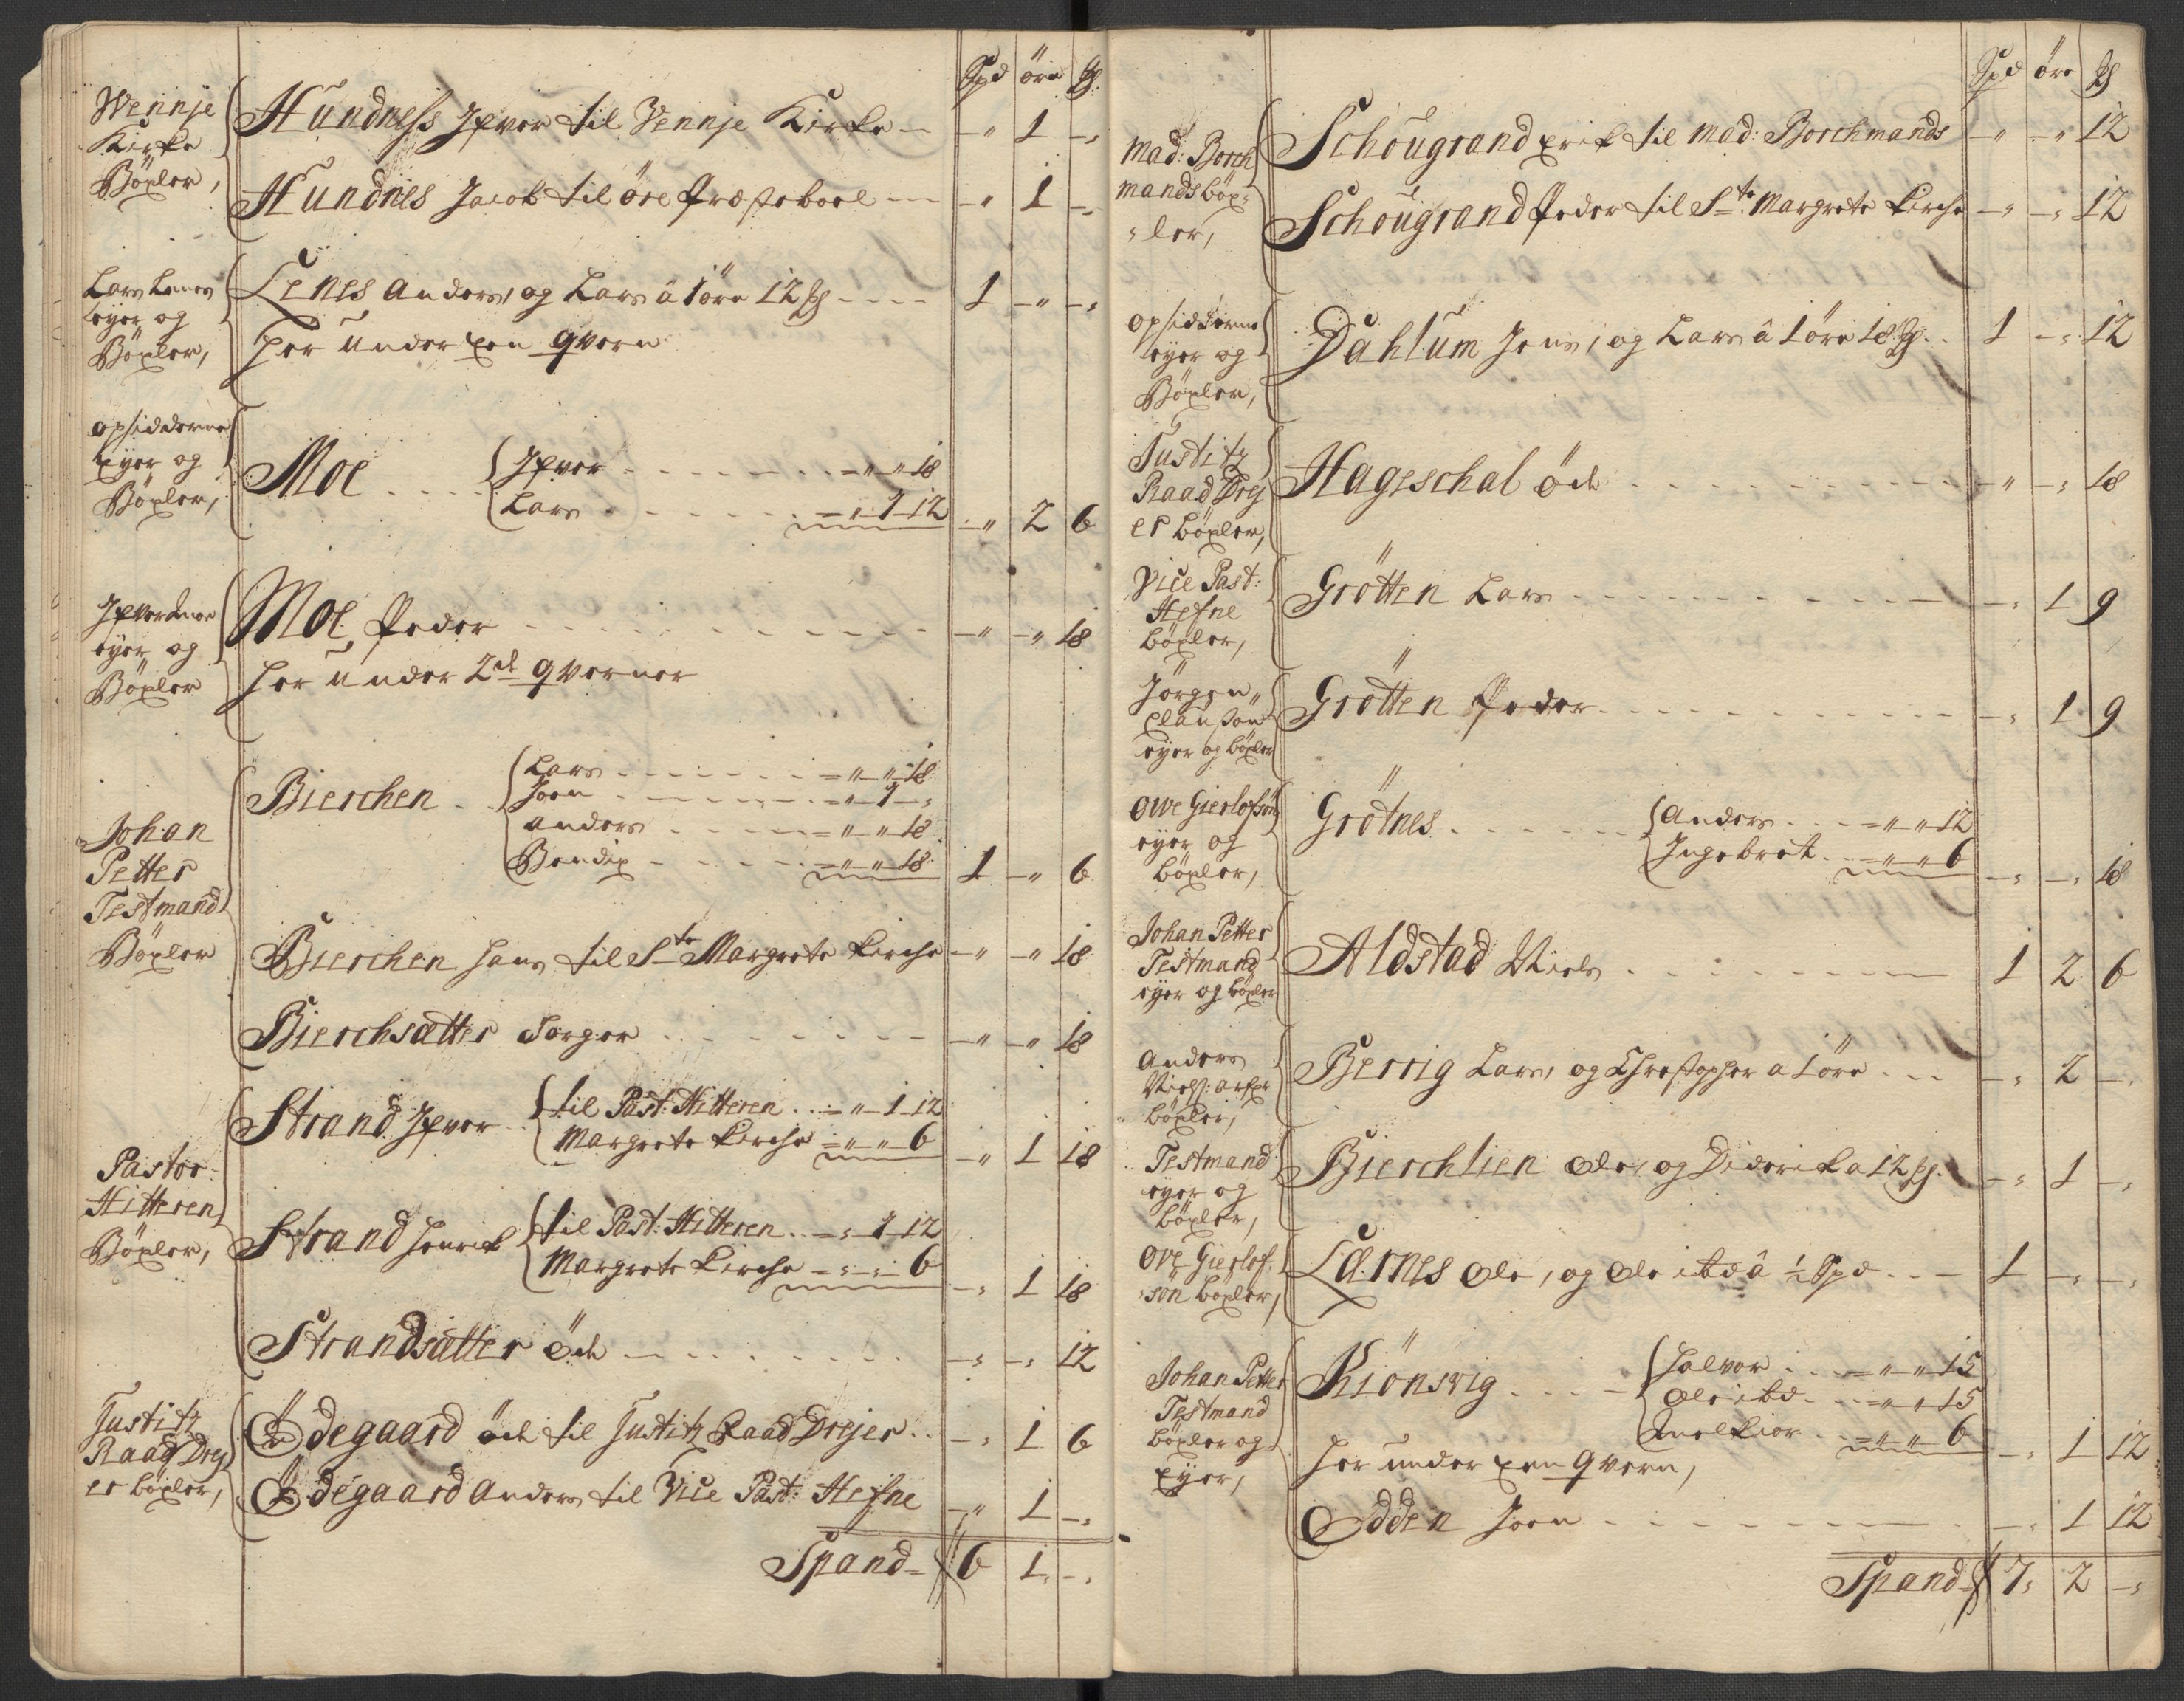 Spd öre ₰
Wennje
Kirke
Böxler,
Hundness Ifver til Vennje Kirke — " 1 -
Hundnes Jacob til öre Præsteboel — " 1 -
Lars Lenes
eyer og
Böxler,
Lenes Anders, og Lars â 1 öre 12 ₰ 1 - " -
her under een qvern
opsidderne
eyer og
Böxler,
Moe
Ifver " " 18
Lars " 1 12
" 2 6
Ifver Moe
eyer og
Böxler
Moe Peder - " - " 18
her under 2de qverner
Johan
Petter
Testmand
Böxler
Bierchen
Lars " " 18
Joen " 1 -
Anders " " 18
Bendix " " 18
1 - " 6
Bierchen Hans til Ste Margrete Kirche - " - " 18
Bierchsætter Torger - " - " 18
Pastor
Hitteren
Böxler,
Strand Ifver
til Past: Hitteren " 1 12
Margrete Kirche " " 6
- " 1 18
Strand Henrich
til Past: Hitteren " 1 12
Margrete Kirche " " 6
- " 1 18
Strandsætter Öde - " - " 12
Justitz
Raad Drej
er böxler,
Ödegaard öde til Justitz Raad Drejer - " 1 6
Ödegaard Anders til Vice Past: Hefne - " 1 -
Spand 6 1 -
Spd öre ₰
Mad: Borch
mands böx-
ler,
Schougrand Erik til Mad: Borchmands - " - " 12
Schougrand Peder til Ste Margrete Kirche - " - " 12
opsidderne
eyer og
Böxler,
Dahlum Jens, og Lars â 1 öre 18 ₰ 1 - " 12
Justitz
Raad Drej
er böxler,
Hageschal öde - " - " 18
Vice Past:
Hefne
böxler,
Grötten Lars - " 1 9
Jörgen
Clausön
eyer og böxler
Grötten Peder - " 1 9
Owe Gierlofsön
eyer og
böxler,
Grötnes
Anders " " 12
Ingebret " " 6
- " - " 18
Johan Petter
Testmand
eyer og böxler
Aldstad Niels 1 2 6
Anders
Niels: arfr
böxler,
Berrig Lars, og Christopher a 1 öre - " 2 -
Testmand
eyer og
böxler,
Bierchlien Ole, og Diderik a 12 ₰ - " 1 -
Ove Gierlof-
sön böxler,
Lærnes Ole, og Ole ibd â ½ Spd 1 - -
Johan Petter
Testmand
böxler og
Eyer,
Kiönsvig
Halvor " " 15
Ole ibd " " 15
Melkior " " 6
- " 1 12
her under een qvern,
Odden Joen - " 1 12
Spand 7 2 -